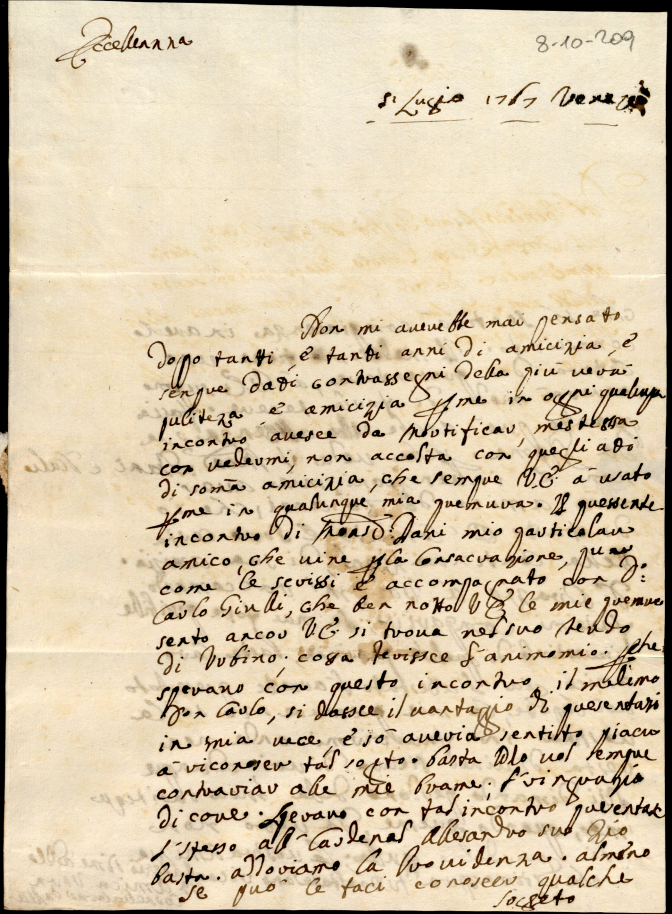 Eccellenna
8-10-209
31 Luglio 1767 Venezia
Non mi averebbe mai pensato
doppo tanti, è tanti anni di amicizia, è
senpre dati contrassegni della piu vera
puliteza è amicizia per me in ogni qualunque
incontro avesce da mortificar, me stessa
con vedermi, non accolta con quegli atti
di soma amicizia, che sempre V.E. à usato
per me in qualunque mia premura. Il pressente
incontro di Mons. Dani mio particolar
amico, che vine per la Consacrazione, pure
come le scrissi è accompagnato con D:
Carlo Giulli, che ben notto V.E. le mie premure
sento ancor V.E. si trova nel suo feudo
di Urbino. cossa ferissce l'animo mio. perche
sperano con questo incontro, il medemo
Don Carlo, si dasse il vantagio di presentarsi
in mia vece, è sò averia sentito piacer
à riconoser tal sogeto. basta Idio vol sempre
contrariar alle mie brame. l'ringrazio
di core. sperano con tal incontro presentar
l'stesso all Cardenal Allesandro suo Zio
basta. alloviamo la Providenza. almeno
se può le faci conoscer qualche
sogeto